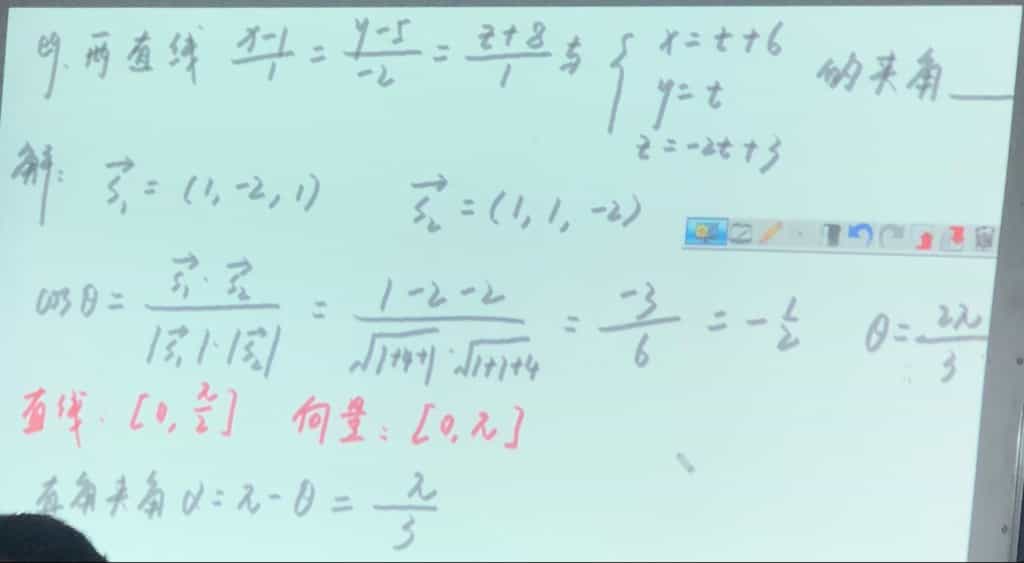 例. 两直线 \frac{x-1}{1} = \frac{y-5}{-2} = \frac{z+8}{1} 与 { x=t+6 的夹角____
y=t
z=-2t+3
解: \vec{s_1} = (1, -2, 1) \vec{s_2} = (1, 1, -2)
cosθ = \frac{\vec{s_1}·\vec{s_2}}{|\vec{s_1}|·|\vec{s_2}|} = \frac{1-2-2}{\sqrt{1+4+1}·\sqrt{1+1+4}} = \frac{-3}{6} = -\frac{1}{2} θ=\frac{2π}{3}
直线: [0, \frac{π}{2}] 向量: [0, π]
夹角 α = π - θ = \frac{π}{3}